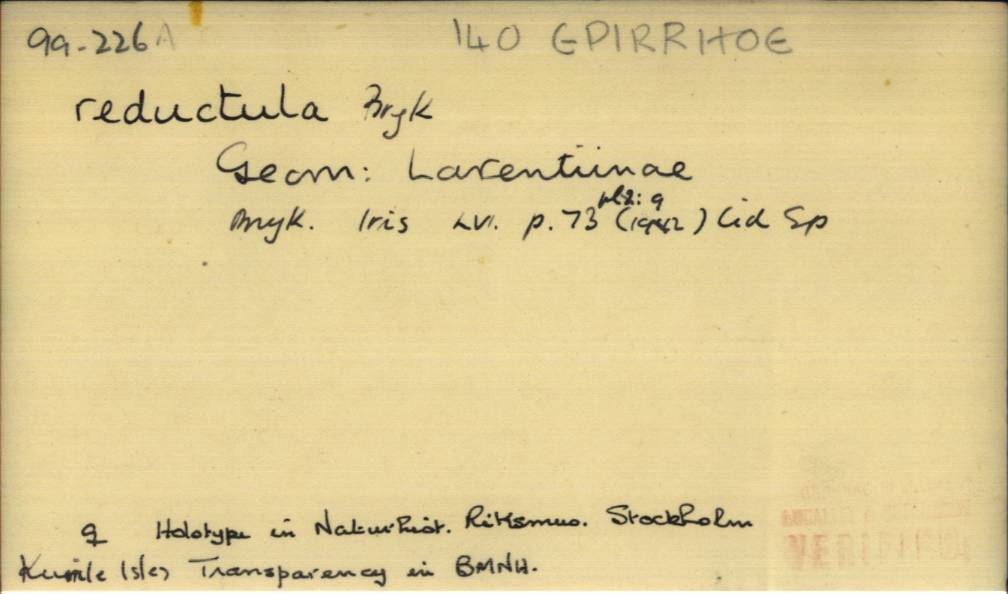 99-226A 140 EPIRRHOE
reductula Bryk
Geom: Larentiinae
pl 2: 9
Bryk. Iris LVI. p. 73 (1942) Cid Sp
Holotype in Naturhist. Riksmus. Stockholm
Kurile Isles Transparency in BMNH.
VERIFIED